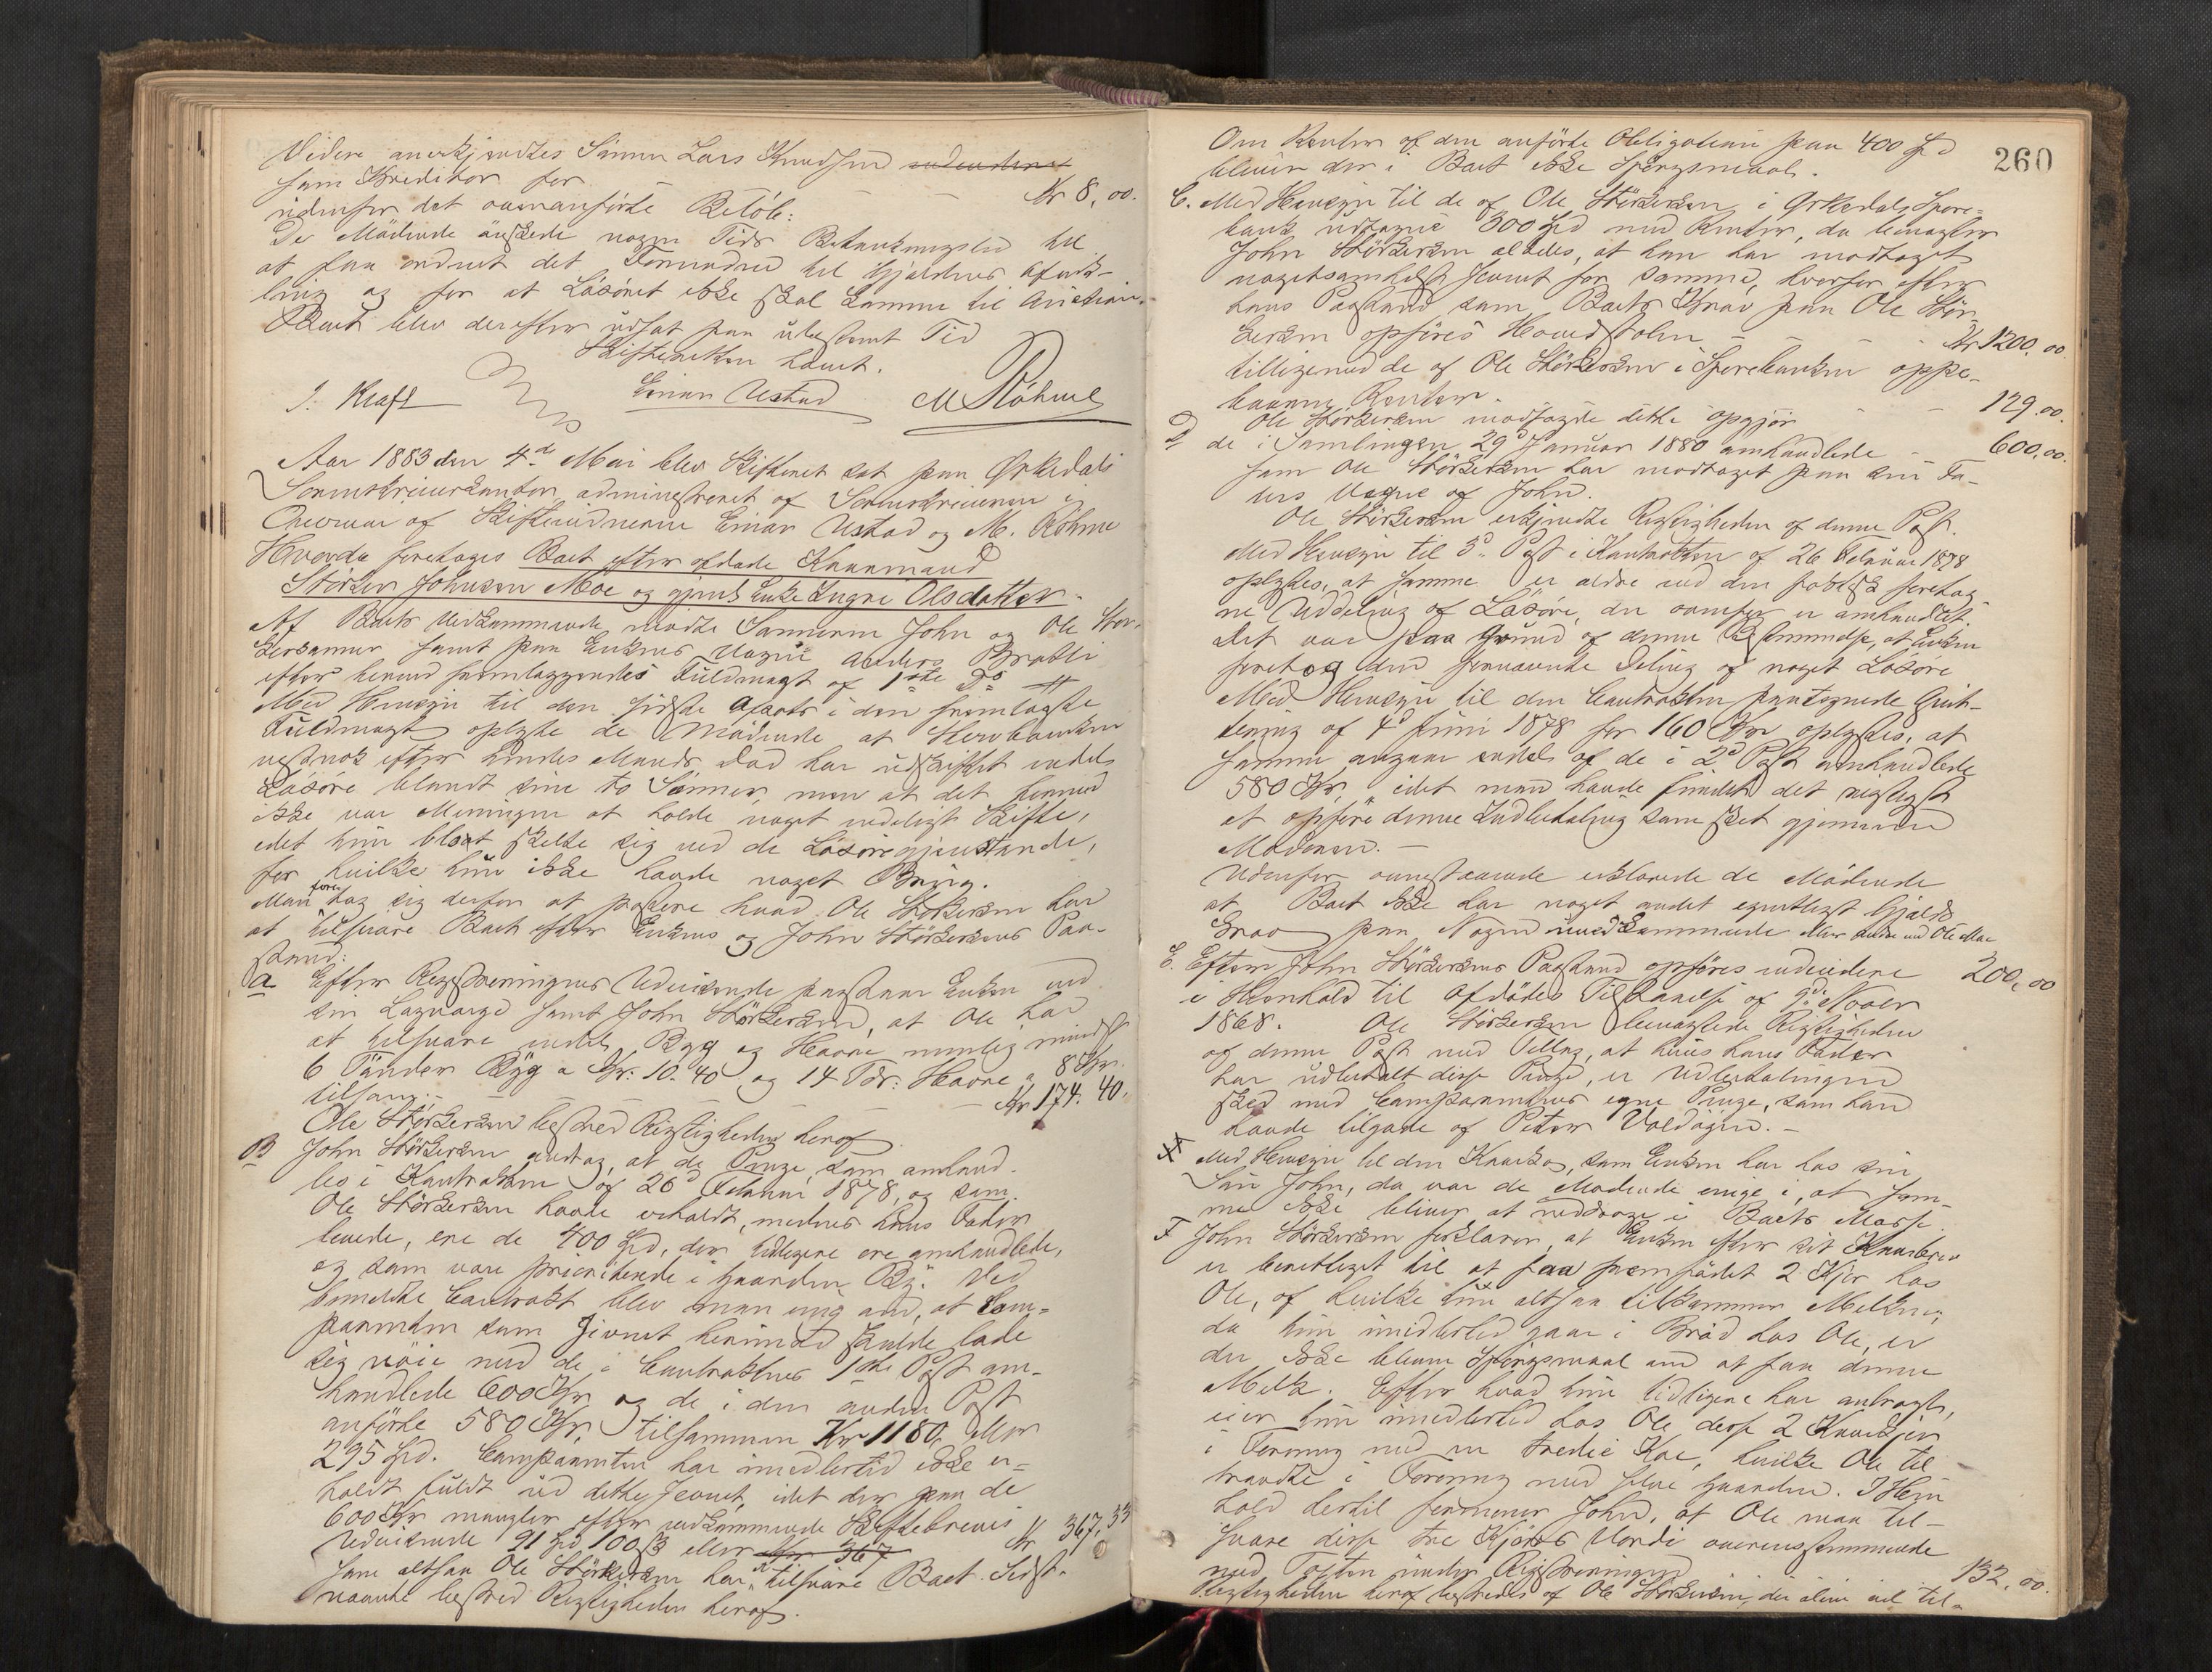 Videre anerkjendtes Sønnen Lars Knudsen
som Kreditor for Kr 8,00.
udenfor det ovenanførte Beløb:
De Mødende ønskede nogen Tids Betænkningstid til
at faa ordnet det Fornødne til Gjældens Afvik-
ling og for at Løsøret ikke skal komme til Auktion.
Boet blev derefter udsat paa ubestemt Tid
Skifteretten hævet.
J. Kraft Einar Ustad M Røhme
Aar 1883 den 4de Mai blev Skifteret sat paa Ørkedals
Sorenskriverkontor administreret af Sorenskriveren i
Overvær af Skiftevidnerne Einar Ustad og M. Røhme
Hvorda foretoges Boet efter afdøde Kaarmand
Størker Johnsen Moe og gjenl. Enke Ingri Olsdatter.
Af Boets Vedkommende mødte Sønnerne John og Ole Stør-
kersønner samt paa Enkens Vegne Anders
efter herved fremlæggendes Fuldmagt af 1ste ds
Med Hensyn til den første Afsats i den fremlagte
Fuldmagt oplyste de Mødende at Stervboenken
vistnok efter hendes Mands Død har udskiftet endel
Løsøre blandt sine to Sønner, men at det herved
ikke var Meningen at holde noget endeligt Skifte,
idet hun blot skilte sig ved de Løsøregjenstande,
for hvilke hun ikke havde noget Brug.
Man foretog sig derfor at postere hvad Ole Størkersen har
at tilsvare Boet efter Enkens og John Størkersens Paa-
stand:
a Efter Registreringens Udvisende paastaar Enken ved
sin Lagværge samt John Størkersen, at Ole har
at tilsvare endel Byg og Havre nemlig mindst
6 Tønder Byg a Kr. 10.40 og 14 Tdr. Havre a 8 Kr.
tilsam. Kr 174.40.
Ole Størkersen bestred Rigtigheden heraf
B John Størkersen antog, at de Penge som omhand-
les i Kontrakten af 26d Februar 1878, og som
Ole Størkersen havde erholdt, medens hans Fader
levede, ere de 400 Spd, der tidligere ere omhandlede,
og som vare prioriterede i Gaarden By. Ved
bemeldte Contrakt blev man enig om, at Com-
parenten som Jevnet herimod skulde lade
sig nøie med de i Contraktens 1ste Post om-
handlede 600 Kr og de i den anden Post
anførte 580 Kr, tilsammen Kr 1180, eller
295 Spd. Comparenten har imidlertid ikke er-
holdt fuldt ud dette Jevnet, idet der paa de
600 Kr mangler efter vedkommende Skiftebrevs
Udvisende 91 Spd 100 ß eller Kr 367,33
som altsaa Ole Størkersen har at tilsvare Boet. Sidst-
nævnte bestred Rigtigheden heraf.
260
Om Renter af den anførte Obligation paa 400 Spd
bliver der i Boet ikke Spørgsmaal.
C. Med Hensyn til de af Ole Størkersen i Orkedals Spare-
bank udtagne 300 Spd med Renter, da benægter
John Størkersen aldeles, at han har modtaget
nogetsomhelst Jevnet for samme, hvorfor efter
hans Paastand som Boets Krav paa Ole Stør-
kersen opføres Hovedstolen Kr 1200.00
tilligemed de af Ole Størkersen i Sparebanken oppe-
baarne Renter 129.00.
Ole Størkersen modsagde dette opgjør
D de i Samlingen 29d Januar 1880 omhandlede 600.00.
som Ole Størkersen har modtaget paa sin Fa-
ders Vegne af John.
Ole Størkersen erkjendte Rigtigheden af denne Post.
Med Hensyn til 3d Post i Kontrakten af 26 Februar 1878
oplystes, at samme er ældre end den faktisk foretag-
ne Uddeling af Løsøre, der ovenfor er omhandlet.
Det var paa Grund af denne Bestemmelse, at Enken
foretog den fornævnte Deling af noget Løsøre
Med Hensyn til den Contrakten paategnede Qvit-
tering af 4d Juni 1878 for 160 Kr oplystes, at
samme angaar endel af de i 2d Post omhandlede
580 Kr, idet man havde fundet det rigtigst
at opføre denne Indbetaling som sket gjennem
Moderen.
Udenfor ovenstaaende erklærede de Mødende
at Boet ikke har noget andet egentligt Gjælds
Krav paa Nogen uvedkommende eller andre end Ole Moe
E. Efter John Størkersens Paastand opføres endvidere 200,00
i Henhold til Afdødes Tilstaaelse af 9de Novbr
1868. Ole Størkersen benægtede Rigtigheden
af denne Post med Tillæg, at hvis hans Fader
har udbetalt disse Penge, er Udbetalingen
sked med Comparentens egne Penge, som han
havde tilgode af Peter Voldøien.
Med Hensyn til den Kaarko, som Enken har hos sin
Søn John, da var de Mødende enige i, at sam-
me ikke bliver at inddrage i Boets Masse.
F John Størkersen forklarer, at Enken efter sit Kaarbrev
er berettiget til at faa fremfødet 2 Kjør hos
Ole, af hvilke hun altsaa tilkommer Melken;
da hun imidlertid gaar i Brød hos Ole, er
der ikke bleven Spørgsmaal om at faa denne
Melk. Efter hvad hun tidligere har anbragt,
eier hun imidlertid hos Ole disse 2 Kaarkjør
i Forening med en tredie Ko, hvilke Ole til-
traadte i Forening med selve Gaarden. I Hen-
hold dertil formener John, at Ole maa til-
svare disse tre Kjørs Værdi overensstemmende
med Taxten under Registreringen 132,00.
Rigtigheden heraf bestredes af Ole Størkersen, der alene vil til-